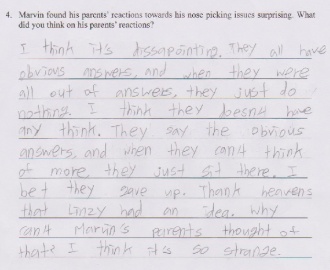 4. Marvin found his parents' reactions towards his nose picking issues surprising. What
did you think on his parents' reactions?
I think it's dissapointing. They all have
obvious answers, and when they were
all out of answers, they just do
nothing. I think they doesn4 have
any think. They say the obvious
answers, and when they can4 think
of more, they just sit there. I
bet they gave up. Thank heavens
that Linzy had an idea. Why
can4 Marvin's parents thought of
that? I think it is so strange.